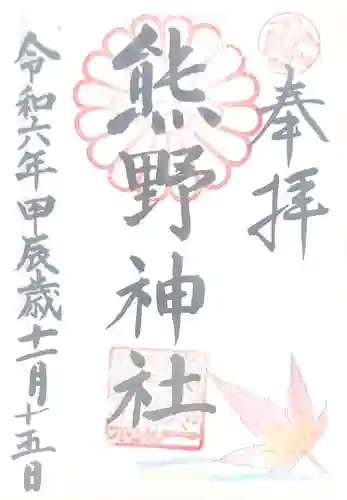 奉拝
熊野神社
令和六年甲辰歳十一月十五日